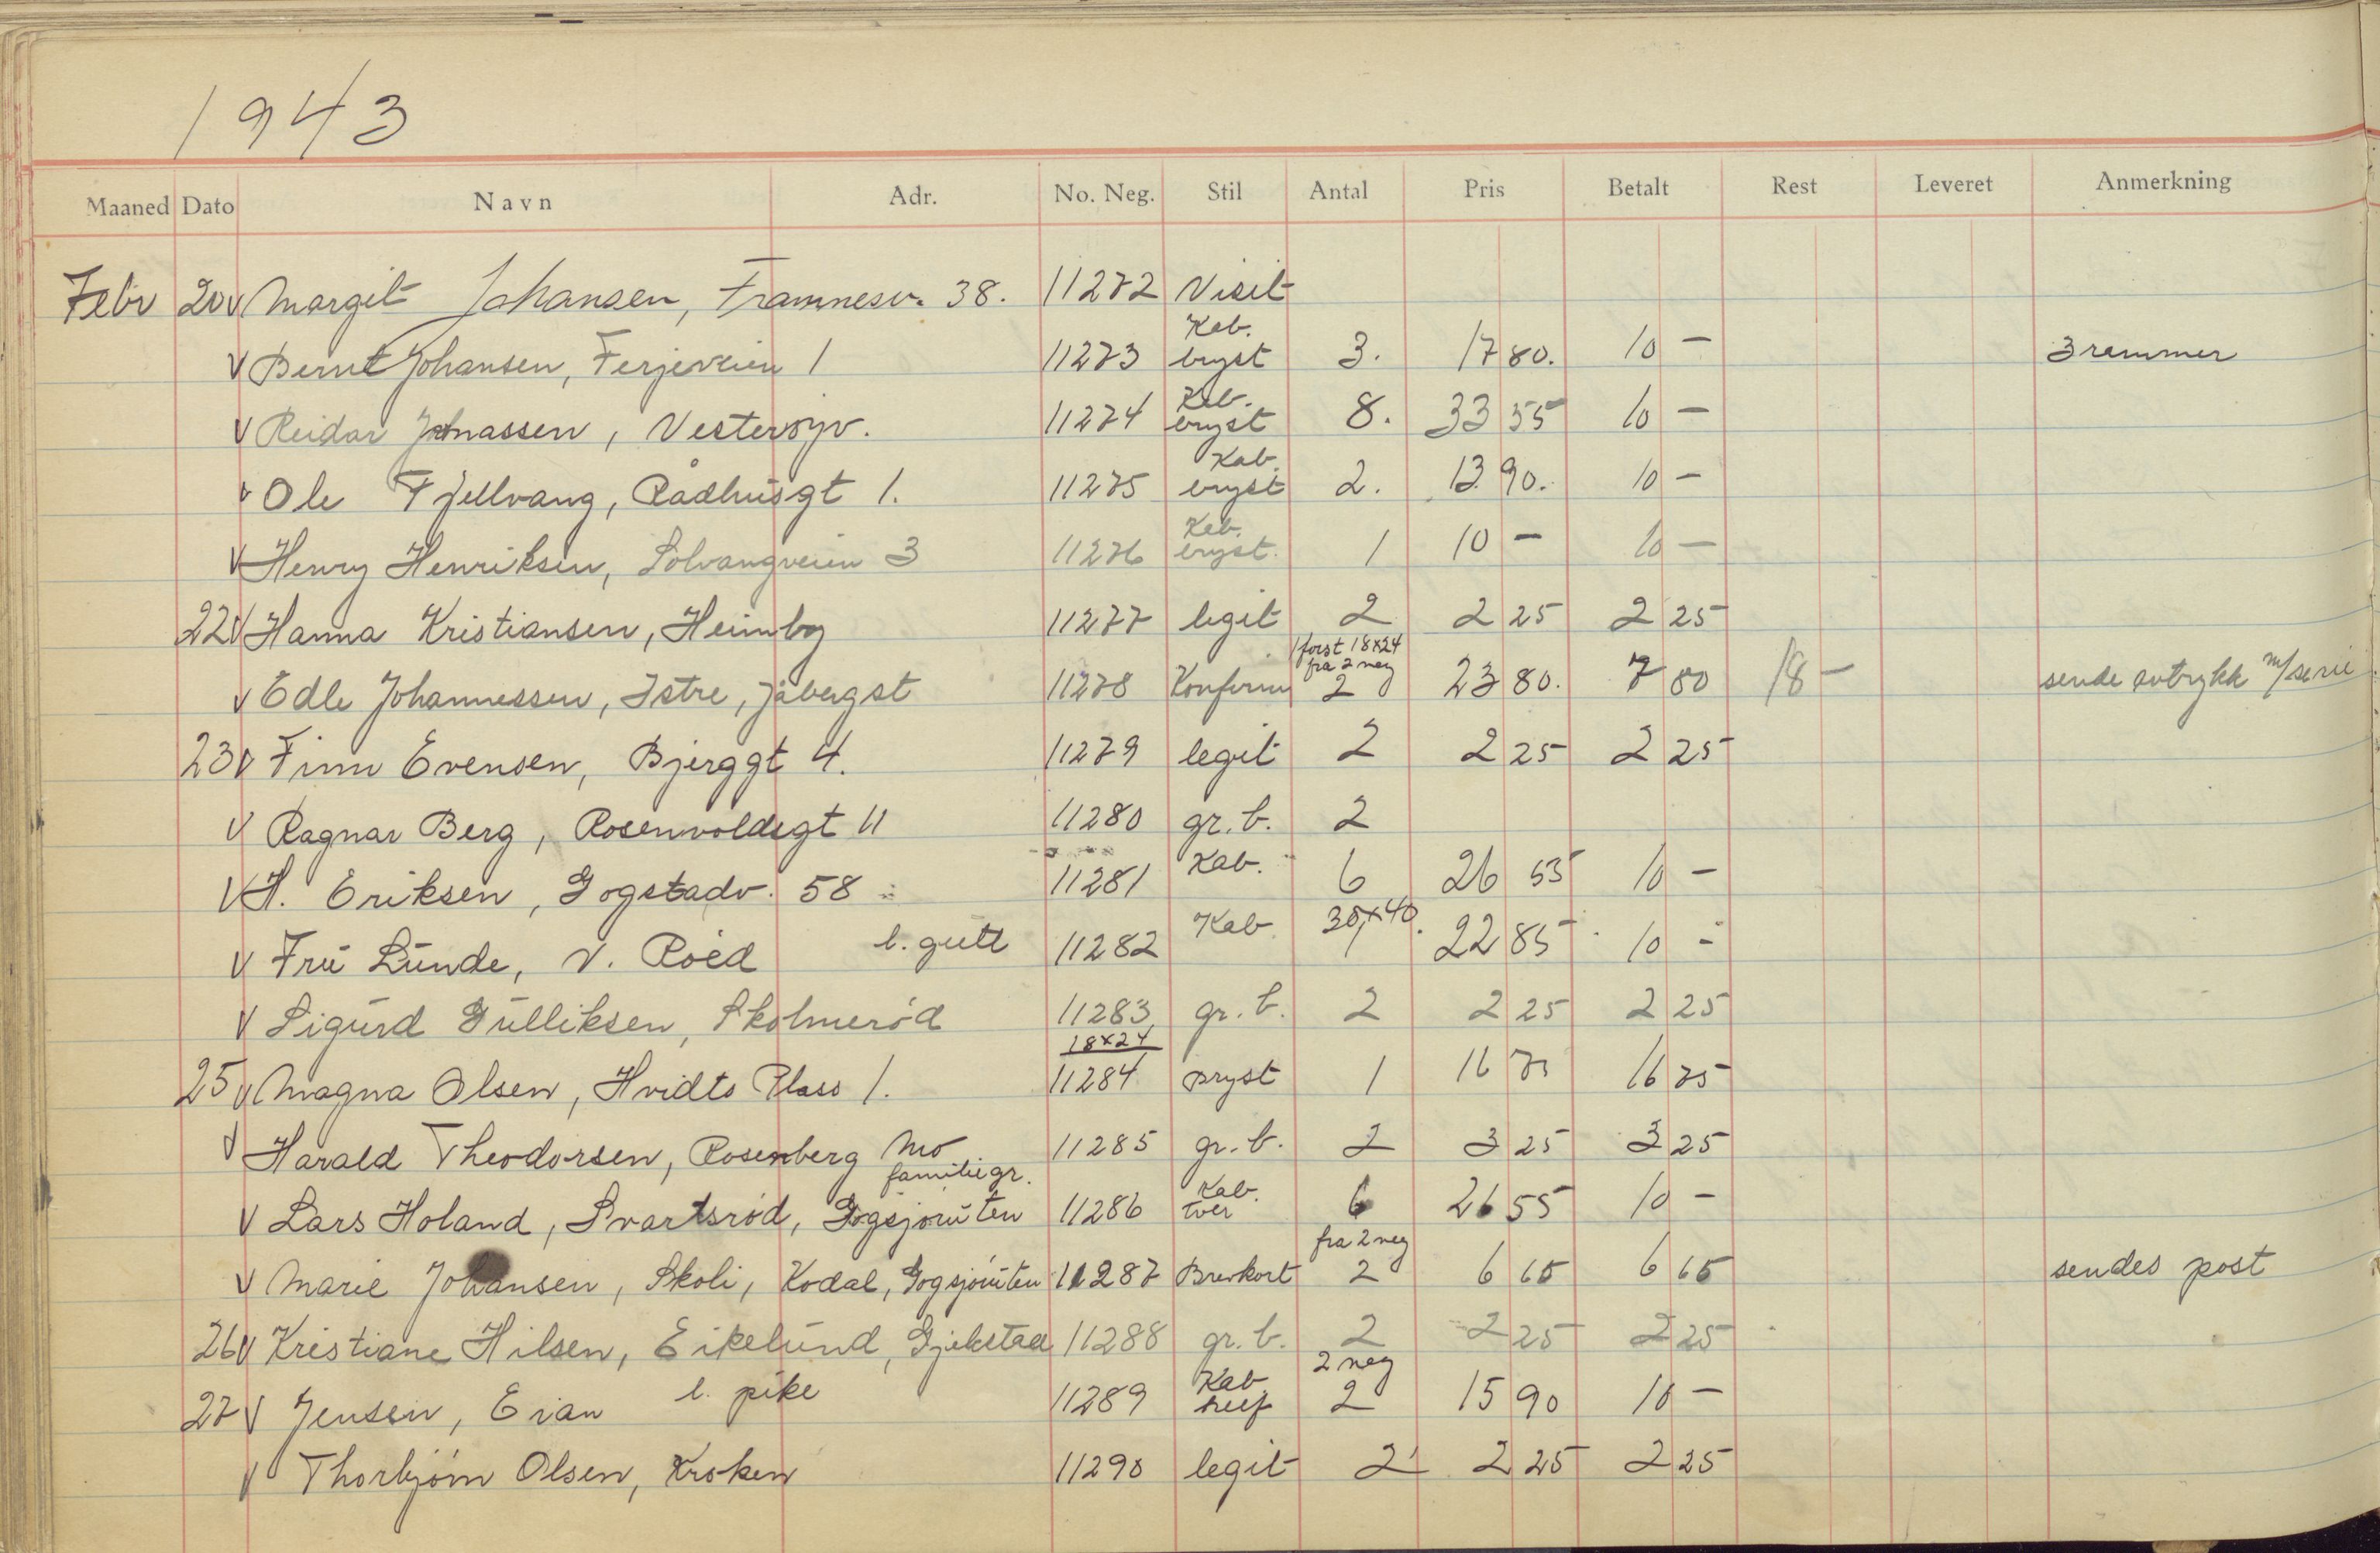 1943
Maaned Dato Navn Adr. No. Neg. Stil Antal Pris Betalt Rest Leveret Anmerkning
Febr 20 V Margit Johansen, Framnesv. 38. 11272 Visit
V Bernt Johansen, Ferjeveien 1 11273 Kab. bryst 3. 17 80. 10 - 3 rammer
V Reidar Jonassen, Vesterøyv. 11274 Kab. bryst 8. 33 55 10 -
V Ole Fjellvang, Rådhusgt 1. 11275 Kab. bryst 2. 13 90. 10 -
V Henry Henriksen, Solvangveien 3 11276 Kab. bryst. 1 10 - 10 -
22 V Hanna Kristiansen, Heimby 11277 legit 2 2 25 2 25
1 forst 18x24
fra 2 neg
V Edle Johannessen, Istre, Jåbergst 11278 Konferm 2 23 80. 7 80 18 - sende avtrykk m/serie
23 V Finn Evensen, Bjerggt 4. 11279 legit 2 2 25 2 25
V Ragnar Berg, Rosenvoldsgt 11 11280 gr. b. 2
V H. Eriksen, Gogstadv. 58 11281 Kab. 6 26 55 10 -
V Frü Lünde, V. Röed l. gutt 11282 Kab 30x40. 1 22 85 10 -
V Sigürd Gülliksen, Skolmerød 11283 gr. b. 2 2 25 2 25
18x24
25 V Magna Olsen, Hvidts Plass 1. 11284 bryst 1 16 75 16 75
V Harald Theodorsen, Rosenberg Mo 11285 gr. b. 2 3 25 3 25
familiegr.
V Lars Holand, Svartsrød, Gogsjørüten 11286 Kab. tver 6 26 55 10 -
fra 2 neg
V Marie Johansen, Skoli, Kodal, Gogsjørüten 11287 Brevkort 2 6 65 6 65 sendes post
26 V Kristiane Hilsen, Eikelünd, Gjekstad 11288 gr. b. 2 2 25 2 25
2 neg
27 V Jensen, Eian l. pike 11289 Kab. 2 15 90 10 -
V Thorbjørn Olsen, Kroken 11290 legit 2 2 25 2 25